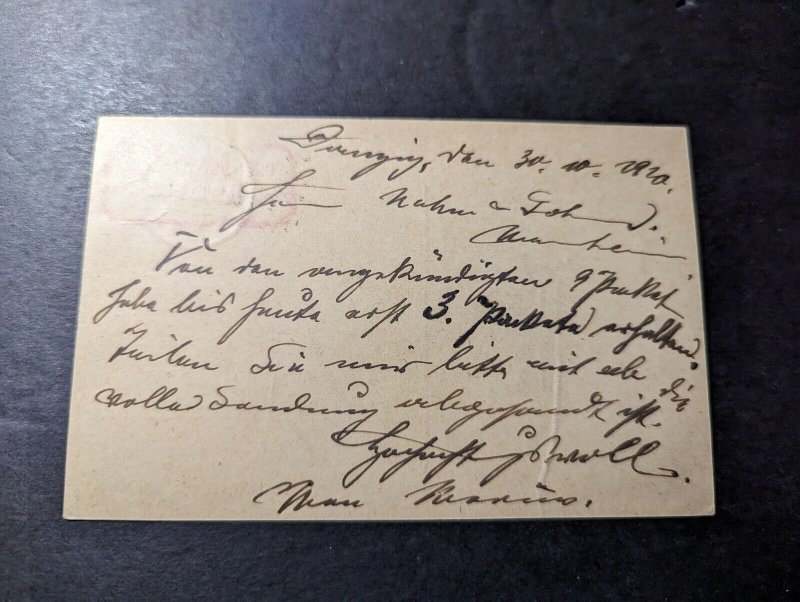 Danzig, den 30. 10. 1920.
Mannheim
Von den angekündigten 9 Paket
habe bis heute erst 3. Pakete erhalten.
Teilen Sie mir bitte mit ob die
volle Sendung abgesandt ist.
Hochachtungsvoll.